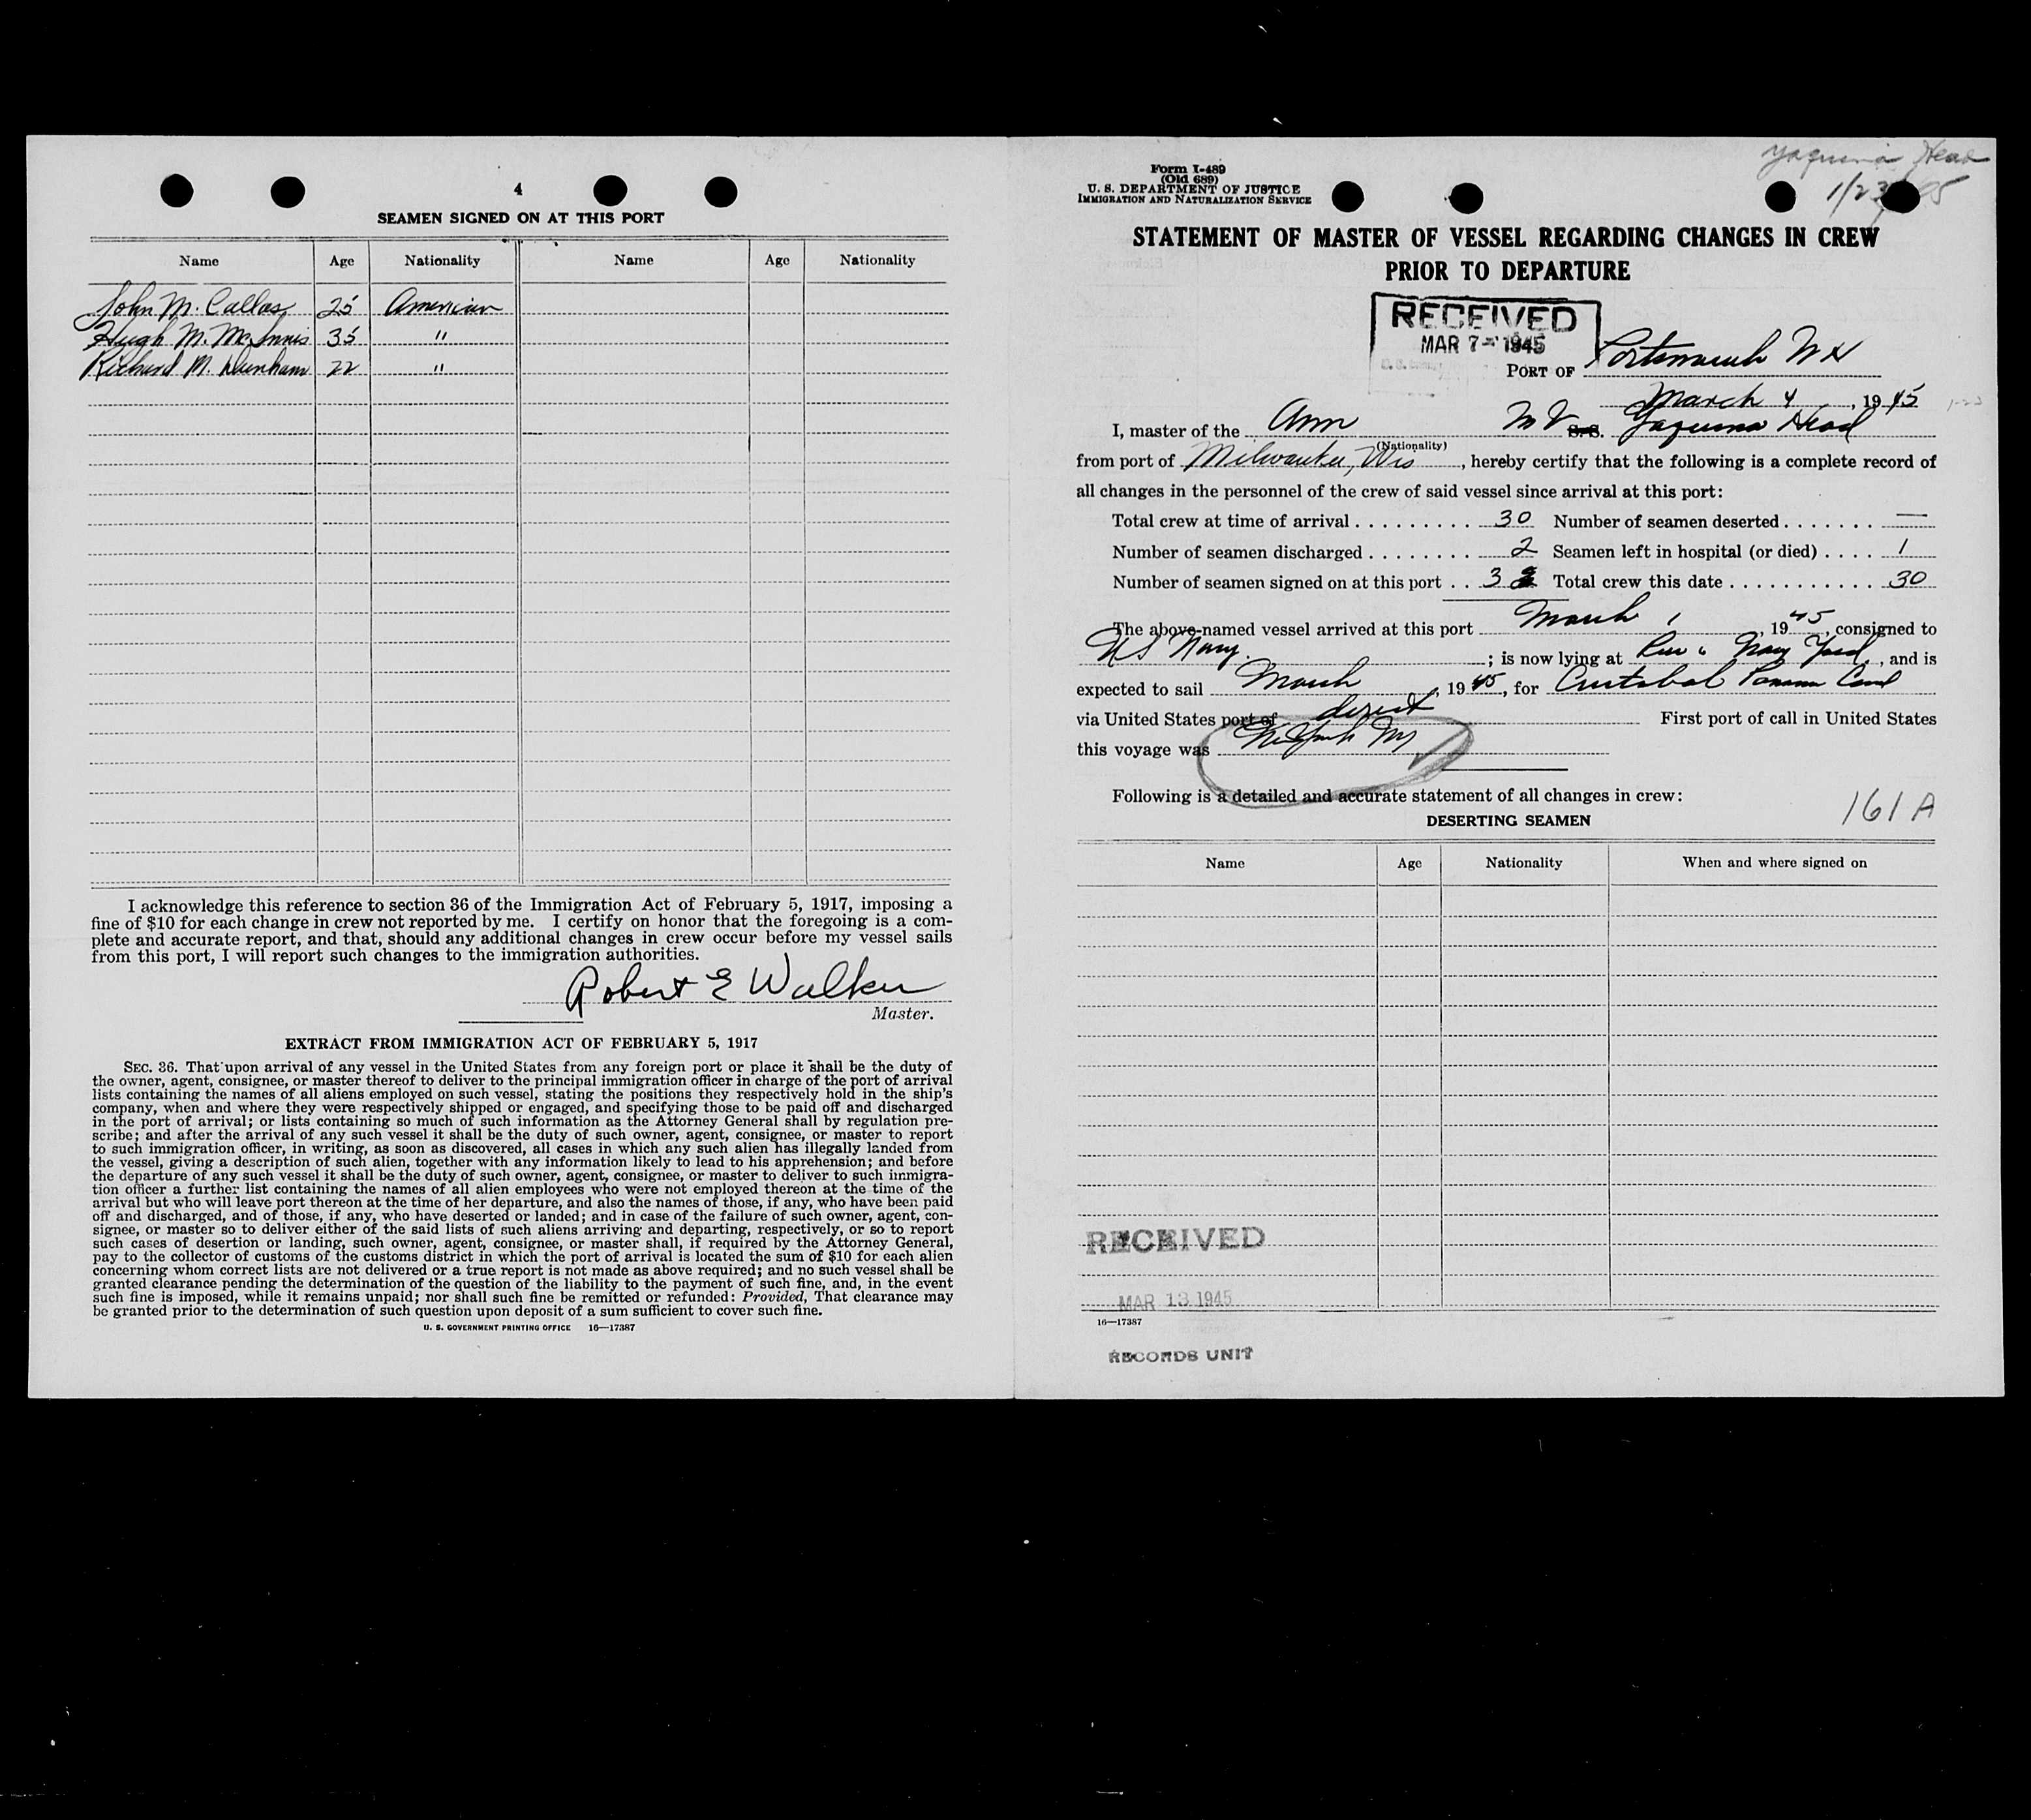 4
SEAMEN SIGNED ON AT THIS PORT
Name Age Nationality Name Age Nationality
John M. Callas 25 American
Hugh M. McInnis 35 "
Richard M. Dunham 22 "
I acknowledge this reference to section 36 of the Immigration Act of February 5, 1917, imposing a
fine of $10 for each change in crew not reported by me. I certify on honor that the foregoing is a com-
plete and accurate report, and that, should any additional changes in crew occur before my vessel sails
from this port, I will report such changes to the immigration authorities.
Robert E Walker
Master.
EXTRACT FROM IMMIGRATION ACT OF FEBRUARY 5, 1917
SEC. 36. That upon arrival of any vessel in the United States from any foreign port or place it shall be the duty of
the owner, agent, consignee, or master thereof to deliver to the principal immigration officer in charge of the port of arrival
lists containing the names of all aliens employed on such vessel, stating the positions they respectively hold in the ship's
company, when and where they were respectively shipped or engaged, and specifying those to be paid off and discharged
in the port of arrival; or lists containing so much of such information as the Attorney General shall by regulation pre-
scribe; and after the arrival of any such vessel it shall be the duty of such owner, agent, consignee, or master to report
to such immigration officer, in writing, as soon as discovered, all cases in which any such alien has illegally landed from
the vessel, giving a description of such alien, together with any information likely to lead to his apprehension; and before
the departure of any such vessel it shall be the duty of such owner, agent, consignee, or master to deliver to such immigra-
tion officer a further list containing the names of all alien employees who were not employed thereon at the time of the
arrival but who will leave port thereon at the time of her departure, and also the names of those, if any, who have been paid
off and discharged, and of those, if any, who have deserted or landed; and in case of the failure of such owner, agent, con-
signee, or master so to deliver either of the said lists of such aliens arriving and departing, respectively, or so to report
such cases of desertion or landing, such owner, agent, consignee, or master shall, if required by the Attorney General,
pay to the collector of customs of the customs district in which the port of arrival is located the sum of $10 for each alien
concerning whom correct lists are not delivered or a true report is not made as above required; and no such vessel shall be
granted clearance pending the determination of the question of the liability to the payment of such fine, and, in the event
such fine is imposed, while it remains unpaid; nor shall such fine be remitted or refunded: Provided, That clearance may
be granted prior to the determination of such question upon deposit of a sum sufficient to cover such fine.
U. S. GOVERNMENT PRINTING OFFICE 16—17387
Yaquina Head
1/23/45
Form I-489
(Old 689)
U. S. DEPARTMENT OF JUSTICE
IMMIGRATION AND NATURALIZATION SERVICE
STATEMENT OF MASTER OF VESSEL REGARDING CHANGES IN CREW
PRIOR TO DEPARTURE
RECEIVED
MAR 7 - 1945
PORT OF Portsmouth N H
March 4, 1945
I, master of the Am M V S. S. Yaquina Head
(Nationality)
from port of Milwaukee, Wis, hereby certify that the following is a complete record of
all changes in the personnel of the crew of said vessel since arrival at this port:
Total crew at time of arrival . . . . . . . . . 30 Number of seamen deserted . . . . . . . —
Number of seamen discharged . . . . . . . . 2 Seamen left in hospital (or died) . . . . 1
Number of seamen signed on at this port . . 3 Total crew this date . . . . . . . . . . . . 30
The above-named vessel arrived at this port March 1, 1945, consigned to
US Navy.; is now lying at Navy Yard, and is
expected to sail March, 1945, for Cristobal Panama Canal
via United States port of direct First port of call in United States
this voyage was New York NY
Following is a detailed and accurate statement of all changes in crew:
161 A
DESERTING SEAMEN
Name Age Nationality When and where signed on
RECEIVED
MAR 13 1945
16—17387
RECORDS UNIT